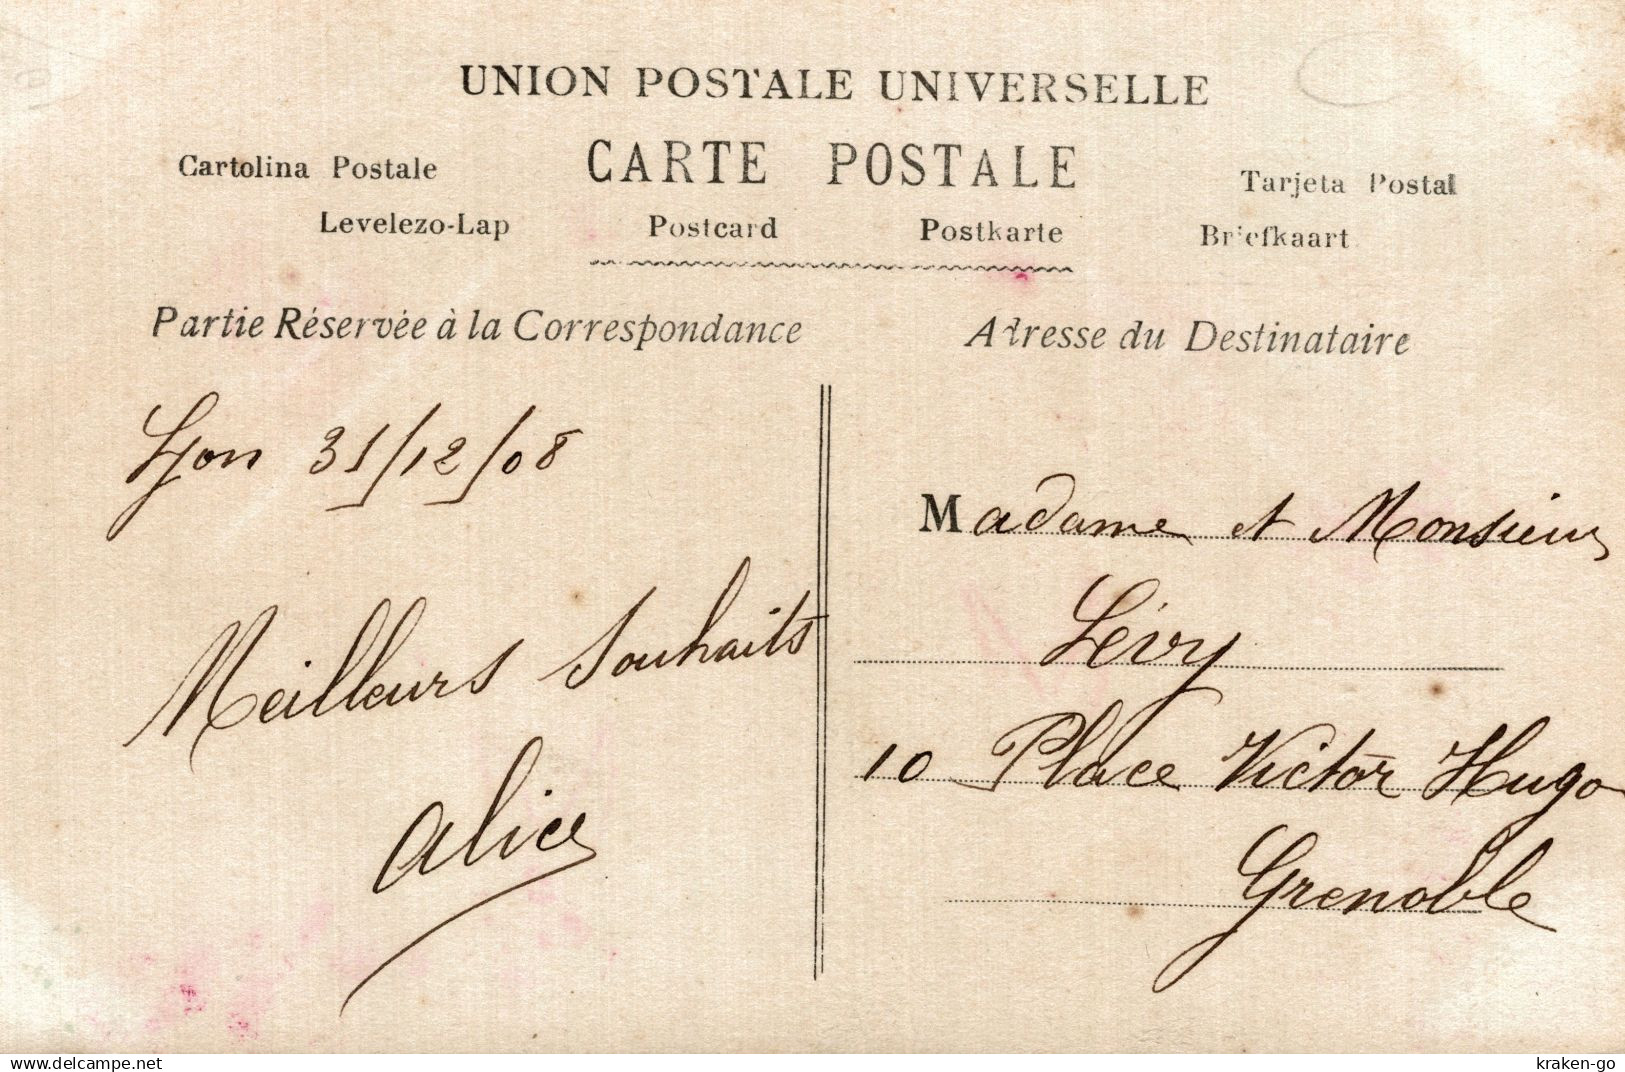 UNION POSTALE UNIVERSELLE
CARTE POSTALE
Cartolina Postale
Tarjeta Postal
Levelezo-Lap Postcard Postkarte Briefkaart
Partie Réservée à la Correspondance
Adresse du Destinataire
Lyon 31/12/08
Meilleurs Souhaits
Alice
Madame et Monsieur
Lévy
10 Place Victor Hugo
Grenoble
delcampe.net
kraken-go